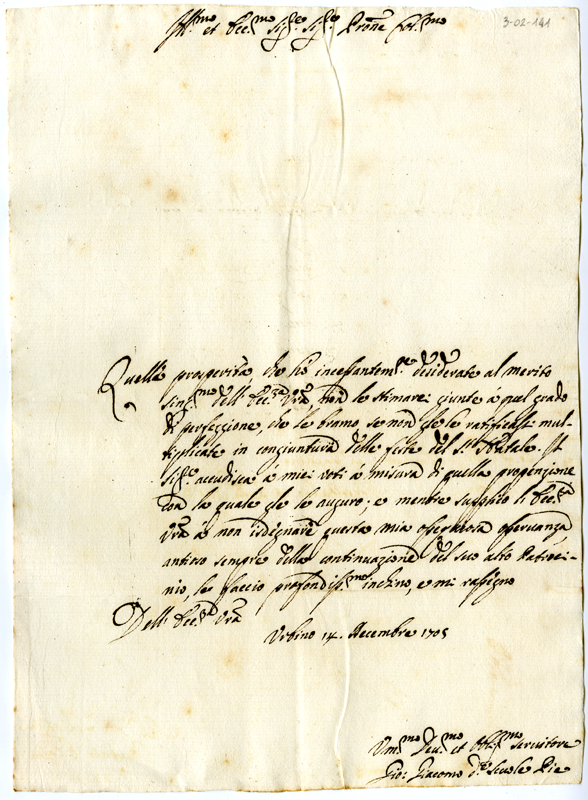 Ill.mo et Ecc.mo Sig.re Sig.re Prone Col.mo
3-02-141
Quella prosperità che hò incessantem.te desiderate al merito
sing.mo dell'Ecc.za Vra non le stimarei giunte à quel grado
di perfezzione, che le bramo, se non gle le ratificassi mul-
tiplicate in congiuntura delle feste del S.to Natale. Il
Sig.re accudisca à miei voti à misura di quella propenzione
con la quale gle le auguro; e mentre supplico l'Ecc.za
Vra à non isdegnare questa mia ossequiosa osseruanza
antioso sempre della continuazione del suo alto Patroci-
nio, le faccio profondiss.mo inchino, e mi rassegno
Dell'Ecc.za Vra
Vrbino 14. Decembre 1705
Vm.mo Deu.mo et Obl.mo seruitore
Gio: Giacomo d.e Scuole Pie